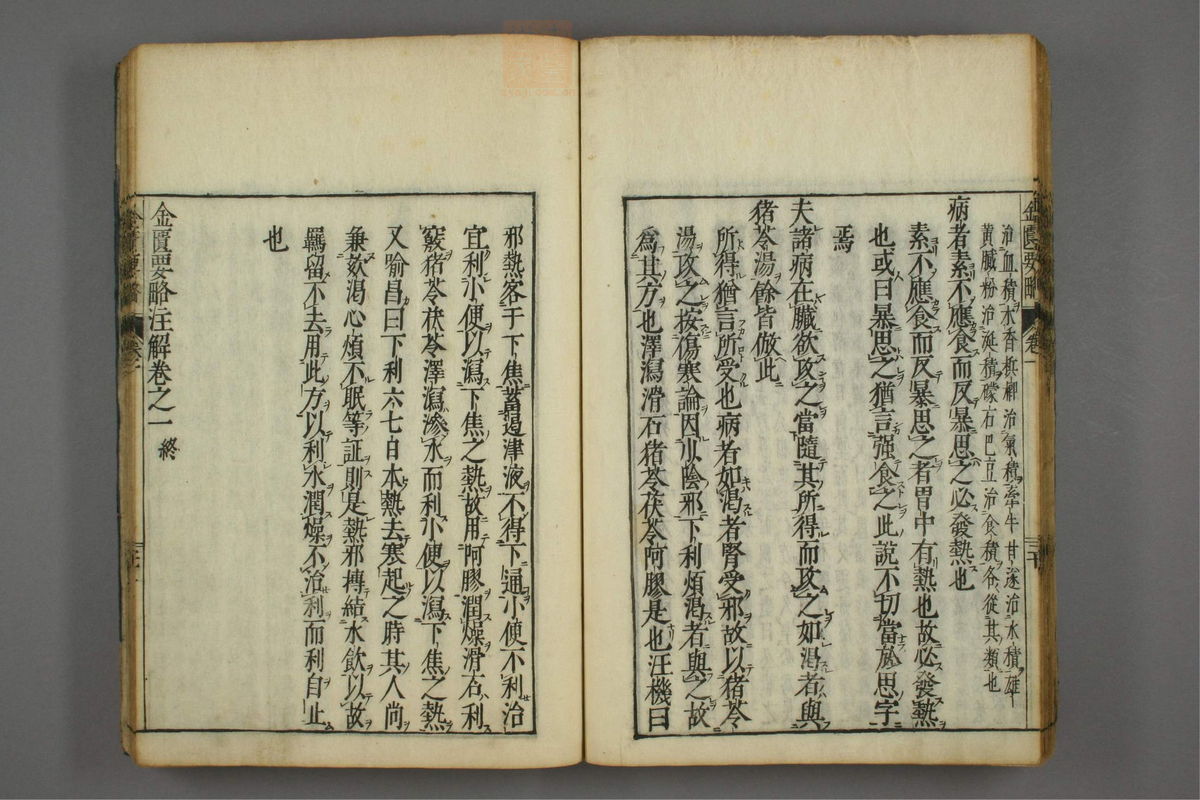 治血積木香梹榔治氣積牽牛甘遂治水積雄
黄膩粉治涎積礞石巴豆治食積各從其類也
病者素不應食而反暴思之必發熱也
素不應食而反暴思之者胃中有熱也故必發熱
也或曰暴思之猶言强食之此說不切當於思字
焉
夫諸病在臟欲攻之當隨其所得而攻之如渴者與
猪苓湯餘皆倣此
所得猶言所受也病者如渴者腎受邪故以猪苓
湯攻之按傷寒論因少陰邪下利煩渴者與之故
爲其方也澤瀉滑石猪苓茯苓阿膠是也汪機曰
邪熱客于下焦蓄遏津液不得下通小便不利治
宜利小便以瀉下焦之熱故用阿膠潤燥滑石利
竅猪苓茯苓澤瀉滲水而利小便以瀉下焦之熱
又喻昌曰下利六七日本熱去寒起之時其人尚
兼欬渴心煩不眠等証則是熱邪摶結水飲以故
羈留不去用此方以利水潤燥不治利而利自止
也
金匱要略注解卷之一 終